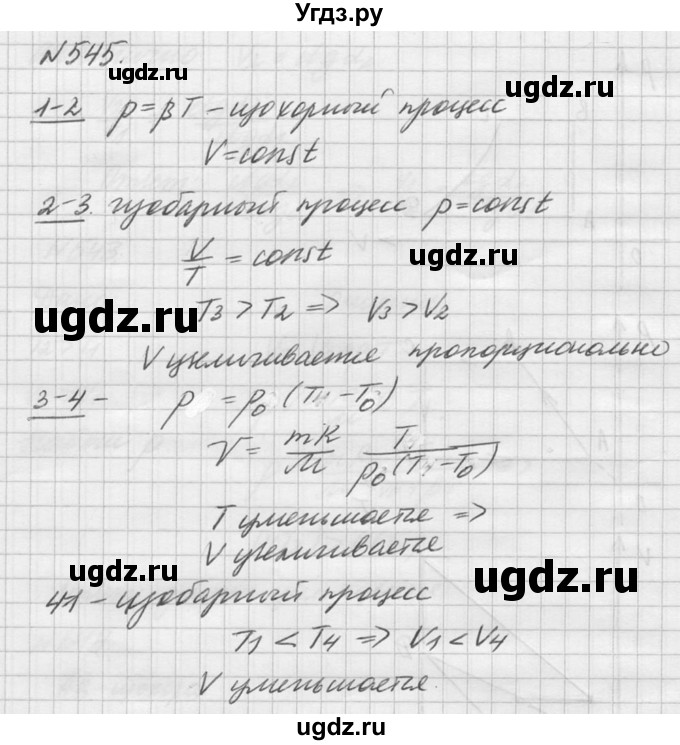 Угдз.ру
N545.
ugdz.ru
1-2 p=βT - изохорный процесс
V=const
2-3. изобарный процесс p=const
V/T = const
ugdz.ru ugdz.ru
T3 > T2 => V3>V2
ugdz.ru
V увеличивается пропорционально
3-4 - p = p0 (T1-T0)
V = mR/M T1/p0(T1-T0)
T уменьшается =>
V увеличивается
ugdz.ru ugdz.ru
41 - изобарный процесс
T1 < T4 => V1 < V4
ugdz.ru
V уменьшается.
ugdz.ru